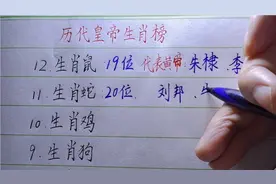 历代皇帝生肖榜
12.生肖鼠 19位 代表皇帝 朱棣.李
11.生肖蛇 20位. 刘邦.
10.生肖鸡
9.生肖狗